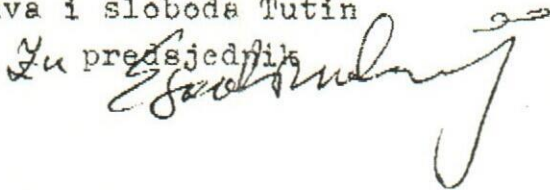 ava i sloboda Tutin
Za predsjednik